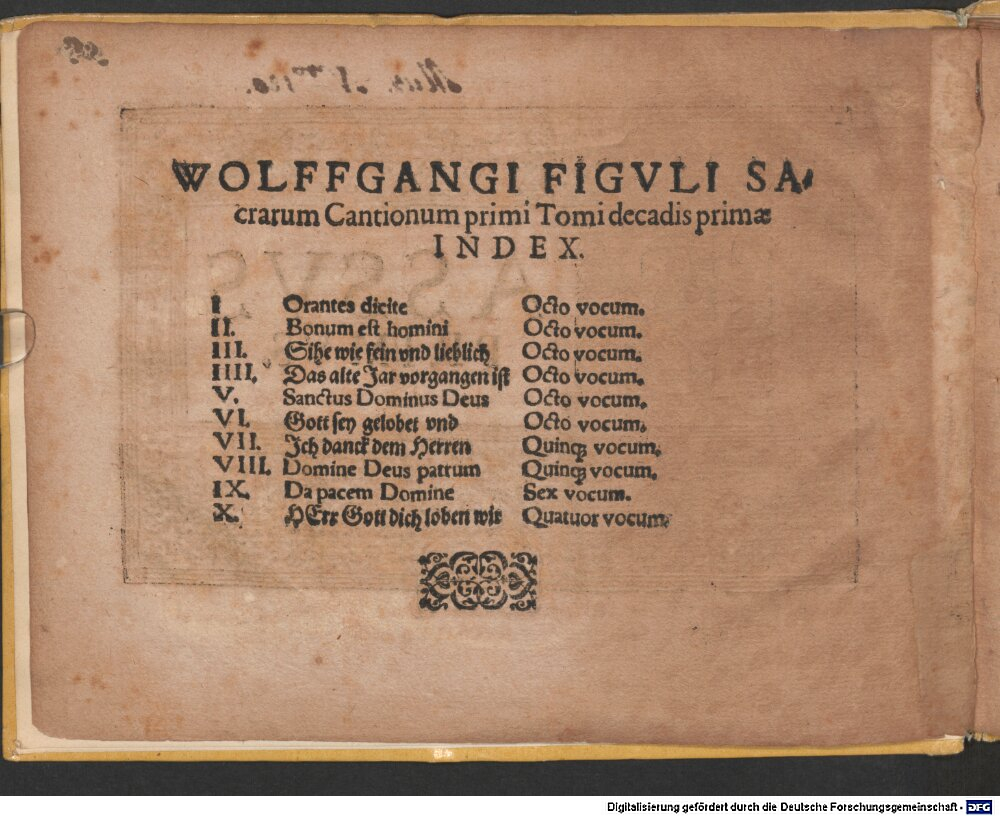 WOLFFGANGI FIGVLI SA-
crarum Cantionum primi Tomi decadis primæ
INDEX.
I. Orantes dicite Octo vocum.
II. Bonum est homini Octo vocum.
III. Sihe wie fein vnd lieblich Octo vocum.
IIII. Das alte Jar vorgangen ist Octo vocum.
V. Sanctus Dominus Deus Octo vocum.
VI. Gott sey gelobet vnd Octo vocum.
VII. Ich danck dem Herren Quinq; vocum.
VIII. Domine Deus patrum Quinq; vocum.
IX. Da pacem Domine Sex vocum.
X. HErr Gott dich loben wir Quatuor vocum.
Digitalisierung gefördert durch die Deutsche Forschungsgemeinschaft - DFG